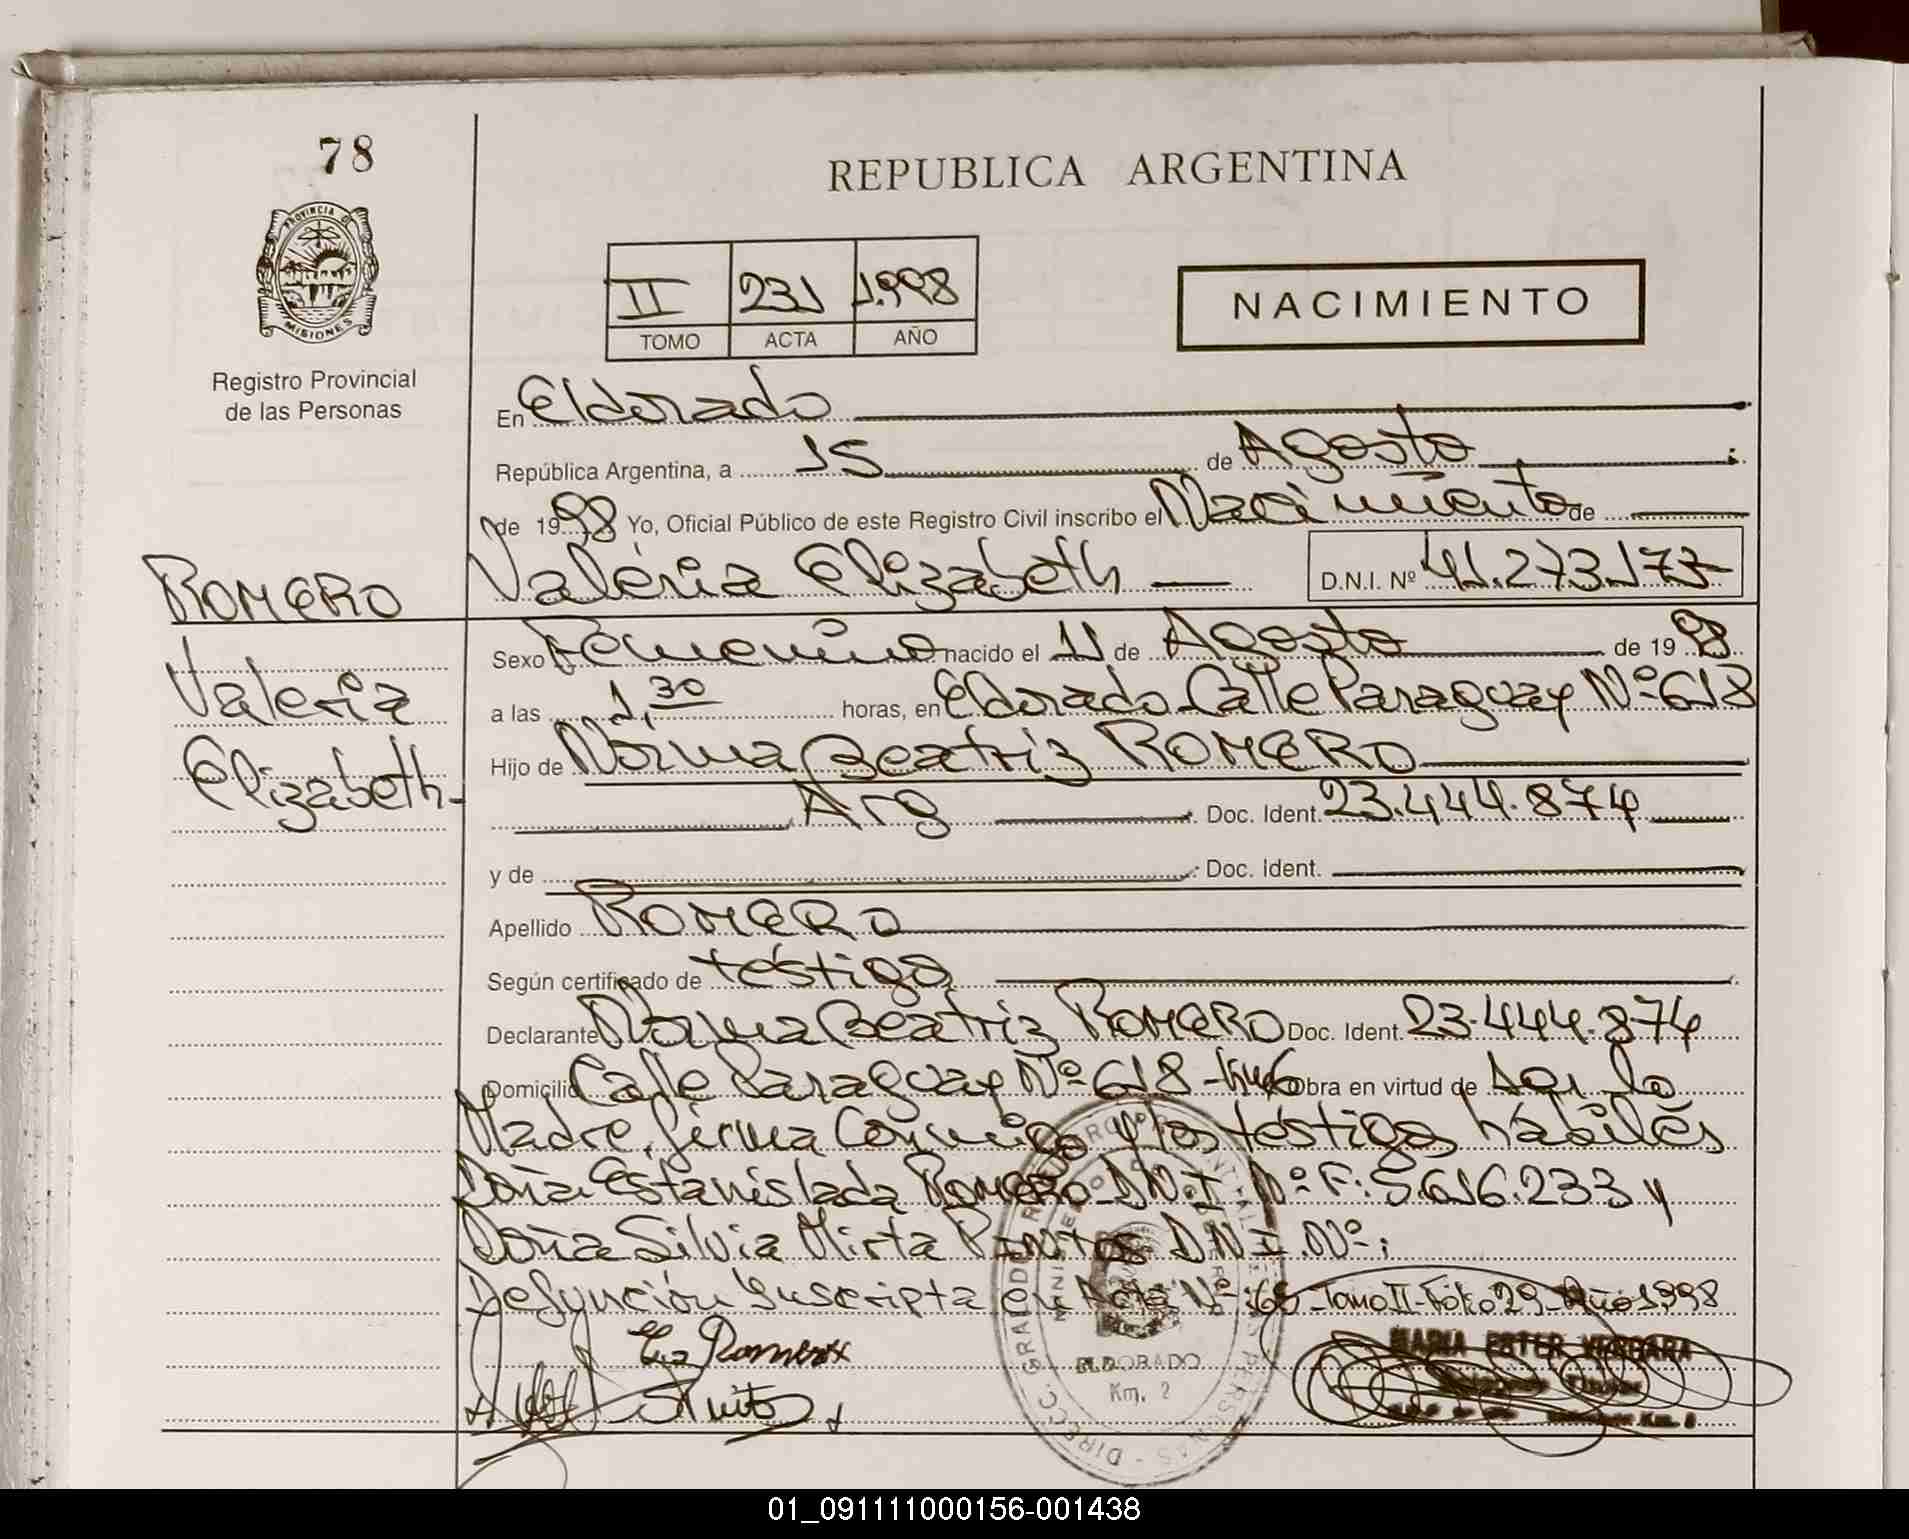 78
REPUBLICA ARGENTINA
PROVINCIA DE MISIONES
II 231 1.998
TOMO ACTA AÑO
NACIMIENTO
Registro Provincial
de las Personas
En Eldorado
República Argentina, a 15 de Agosto
de 1998 Yo, Oficial Público de este Registro Civil inscribo el Nacimiento de
ROMERO
Valeria Elizabeth D.N.I. Nº 41.273.173
Valeria
Elizabeth
Sexo Femenino nacido el 11 de Agosto de 1998
a las 1,30 horas, en Eldorado Calle Paraguay Nº 618
Hijo de Norma Beatriz ROMERO
Arg Doc. Ident. 23.444.874
y de Doc. Ident.
Apellido ROMERO
Según certificado de testigo
Declarante Norma Beatriz ROMERO Doc. Ident. 23.444.874
Domicilio Calle Paraguay Nº 618 - Obra en virtud de ser la
Madre, firma Conmigo y los testigos hábiles
Doña Estanislada Romero D.N.I. Nº F: 5.616.233 y
Doña Silvia Mirta D.N.I. Nº:
Defunción Suscripta en Acta Nº Tomo II - Folio 29 - Año 1998
Romero
MARIA ESTER VERGARA
ELDORADO
Km. 2
01_091111000156-001438